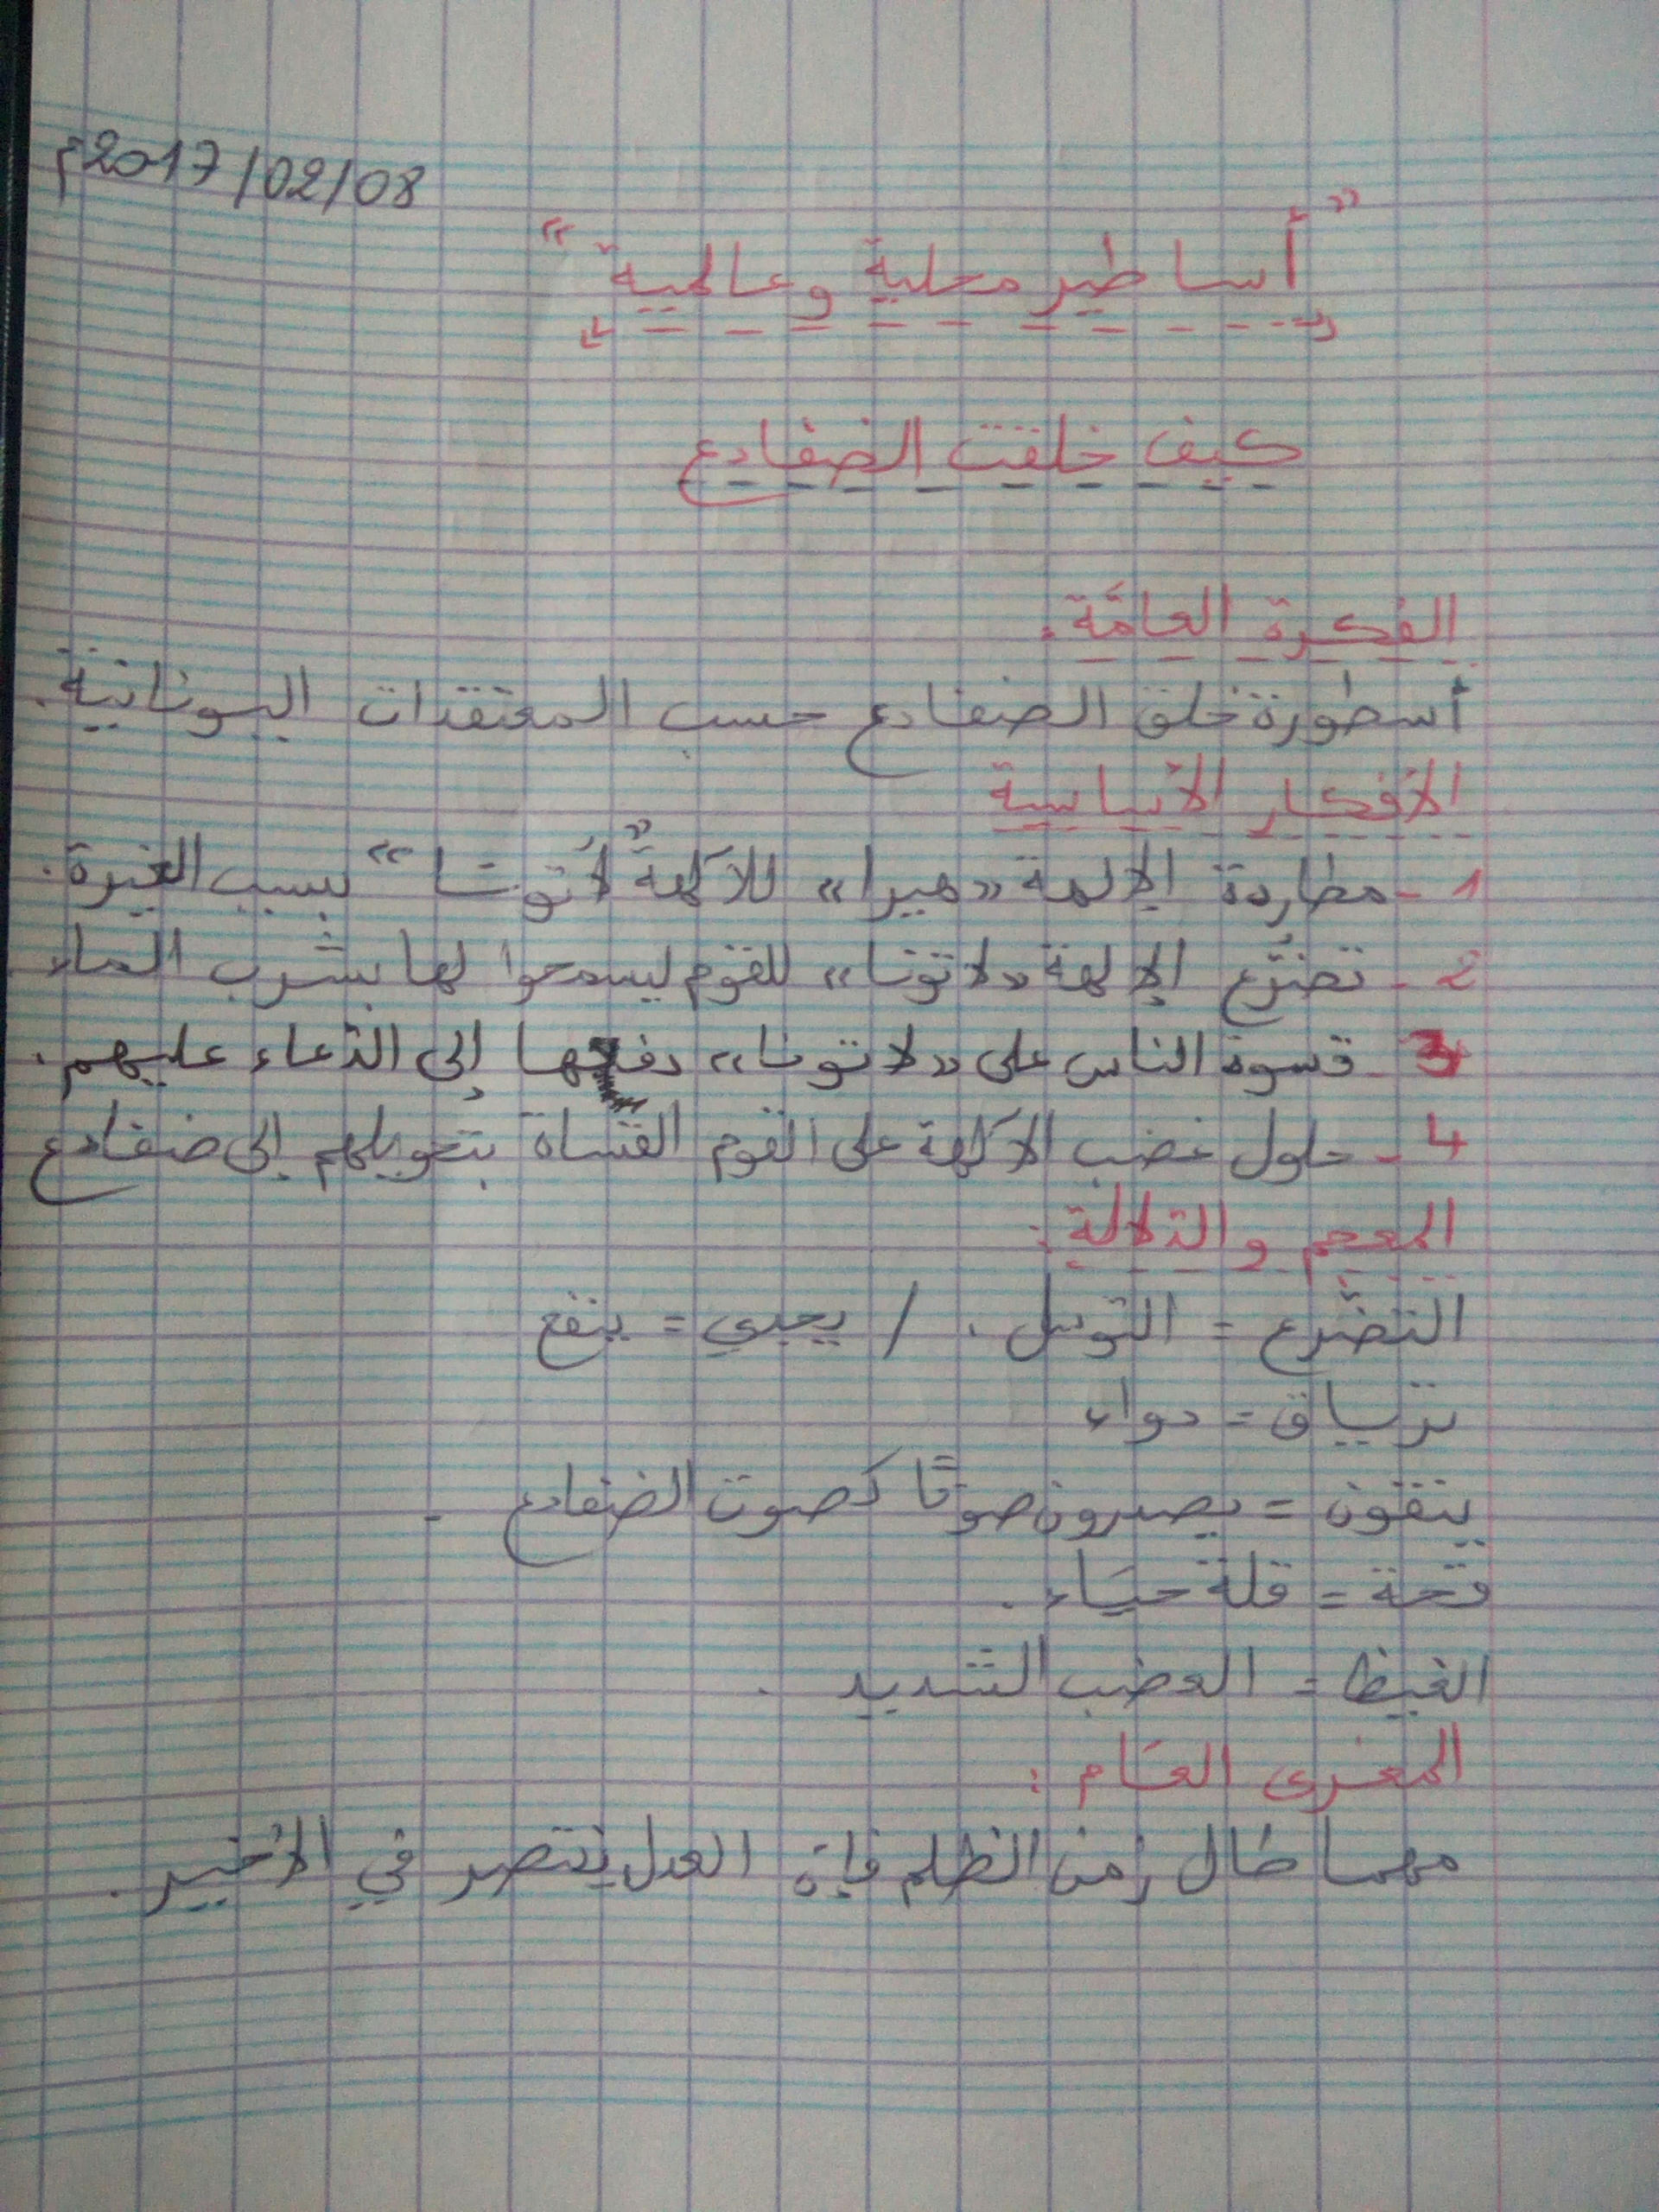 2017/02/08م
"أساطير محلية وعالمية"
كيف خلقت الضفادع
الفكرة العامَّة:
أسطورة خلق الضفادع حسب المعتقدات اليونانية.
الأفكار الأساسية
1- مطاردة الإلهة «هيرا» للآلهة "لاتونا" بسبب الغيرة.
2- تضرُّع الإلهة «لاتونا» للقوم ليسمحوا لها بشرب الماء
3- قسوة الناس على «لاتونا» دفعها إلى الدّعاء عليهم.
4- حلول غضب الآلهة على القوم القساة بتحويلهم إلى ضفادع
المعجم والدّلالة:
التضرُّع = التوسل. / يجدي = ينفع
ترياق = دواء
ينقون = يصدرون صوتًا كصوت الضفادع.
قحة = قلة حياء.
الغيظ = الغضب الشديد.
المغزى العام:
مهما طال زمن الظلم فإنّ العدل ينتصر في الأخير.